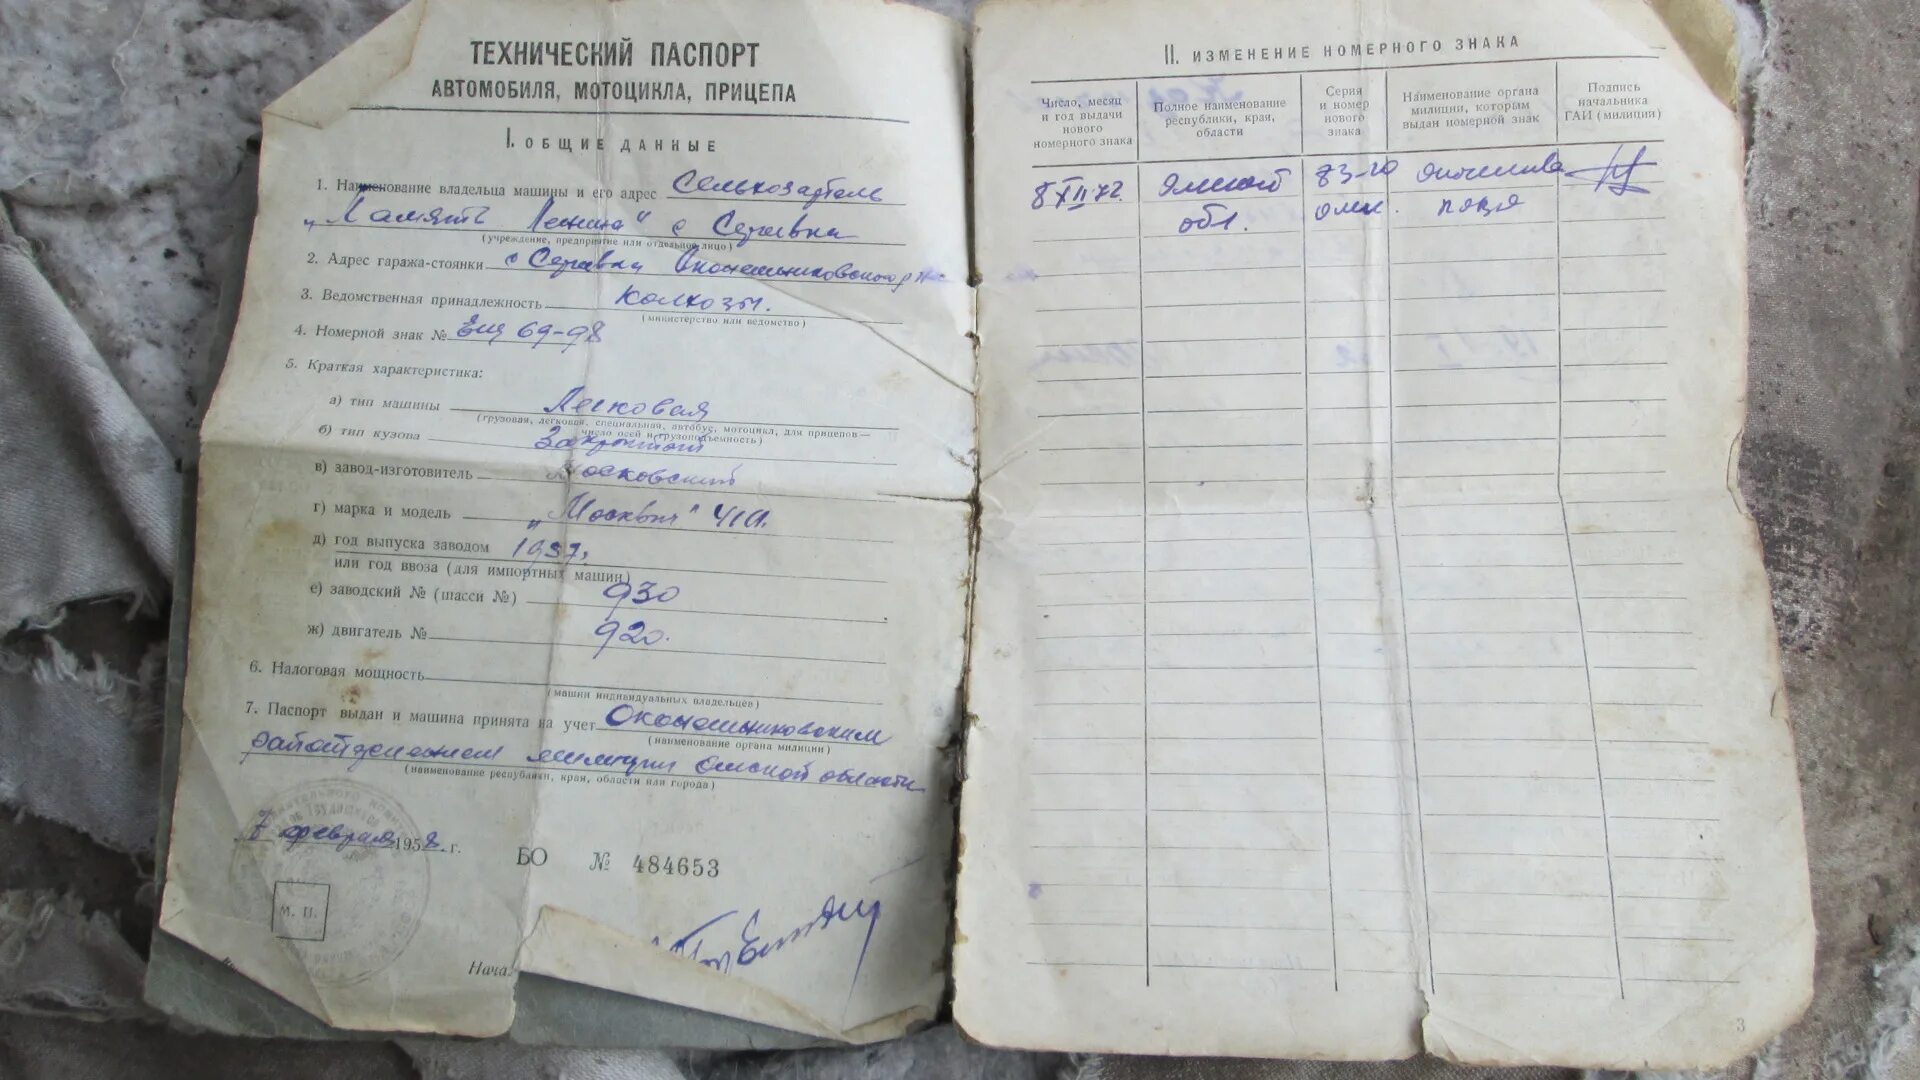 ТЕХНИЧЕСКИЙ ПАСПОРТ
АВТОМОБИЛЯ, МОТОЦИКЛА, ПРИЦЕПА
I. ОБЩИЕ ДАННЫЕ
1. Наименование владельца машины и его адрес Сельхозартель
„Память Ленина" с Сергеевка
(учреждение, предприятие или отдельное лицо)
2. Адрес гаража-стоянки с Сергеевка Оконешниковского р
3. Ведомственная принадлежность колхозы.
(министерство или ведомство)
4. Номерной знак № 69-98
5. Краткая характеристика:
а) тип машины Легковая
(грузовая, легковая, специальная, автобус, мотоцикл, для прицепов—
число осей и грузоподъемность)
б) тип кузова Закрытый
в) завод-изготовитель Московский
г) марка и модель „Москвич"
д) год выпуска заводом 1957.
или год ввоза (для импортных машин)
е) заводский № (шасси №) 930
ж) двигатель № 920.
6. Налоговая мощность
(машин индивидуальных владельцев)
7. Паспорт выдан и машина принята на учет Оконешниковским
(наименование органа милиции)
райотделением милиции Омской области
(наименование республики, края, области или города)
7 февраля 1958 г.
БО № 484653
М. П.
Нача
II. ИЗМЕНЕНИЕ НОМЕРНОГО ЗНАКА
Число, месяц и год выдачи нового номерного знака
Полное наименование республики, края, области
Серия и номер нового знака
Наименование органа милиции, которым выдан номерной знак
Подпись начальника ГАИ (милиции)
8 XII 72. Омской 83-20
обл. омк.
3